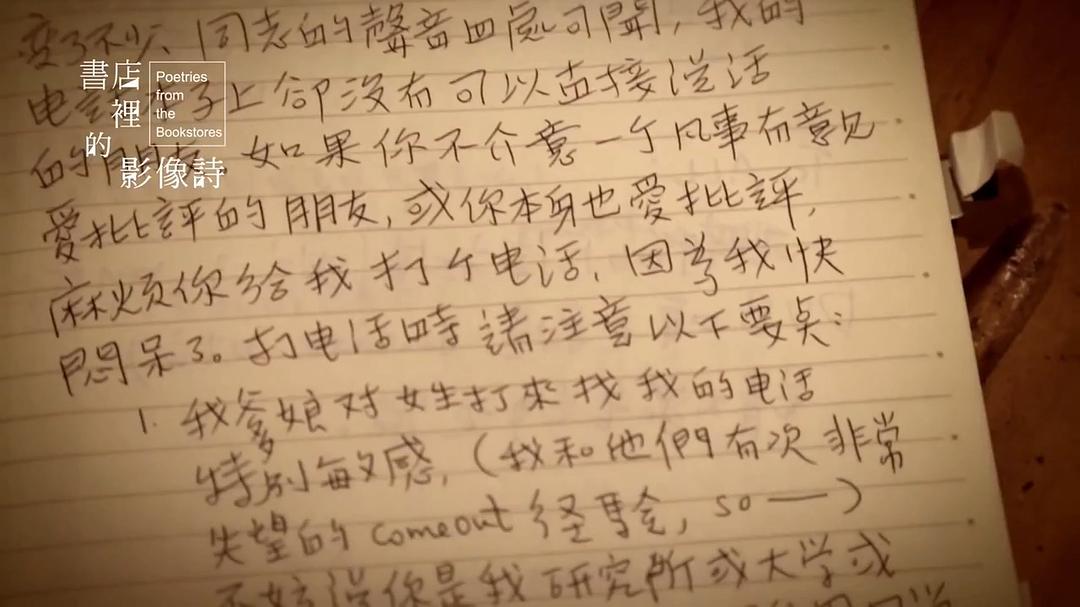 变了不少、同志的聲音四處可聞,我的
电話本子上卻没有可以直接说话
的朋友,如果你不介意一个凡事有意见
愛批評的朋友,或你本身也愛批評,
麻烦你给我打个电话,因為我快
悶呆了。打电话時請注意以下要点:
1. 我爹娘对女生打來找我的电话
特别敏感,(我和他們有次非常
失望的comeout经驗,so——)
不妨说你是我研究所或大学或
書店
裡
的
影像詩
Poetries
from
the
Bookstores